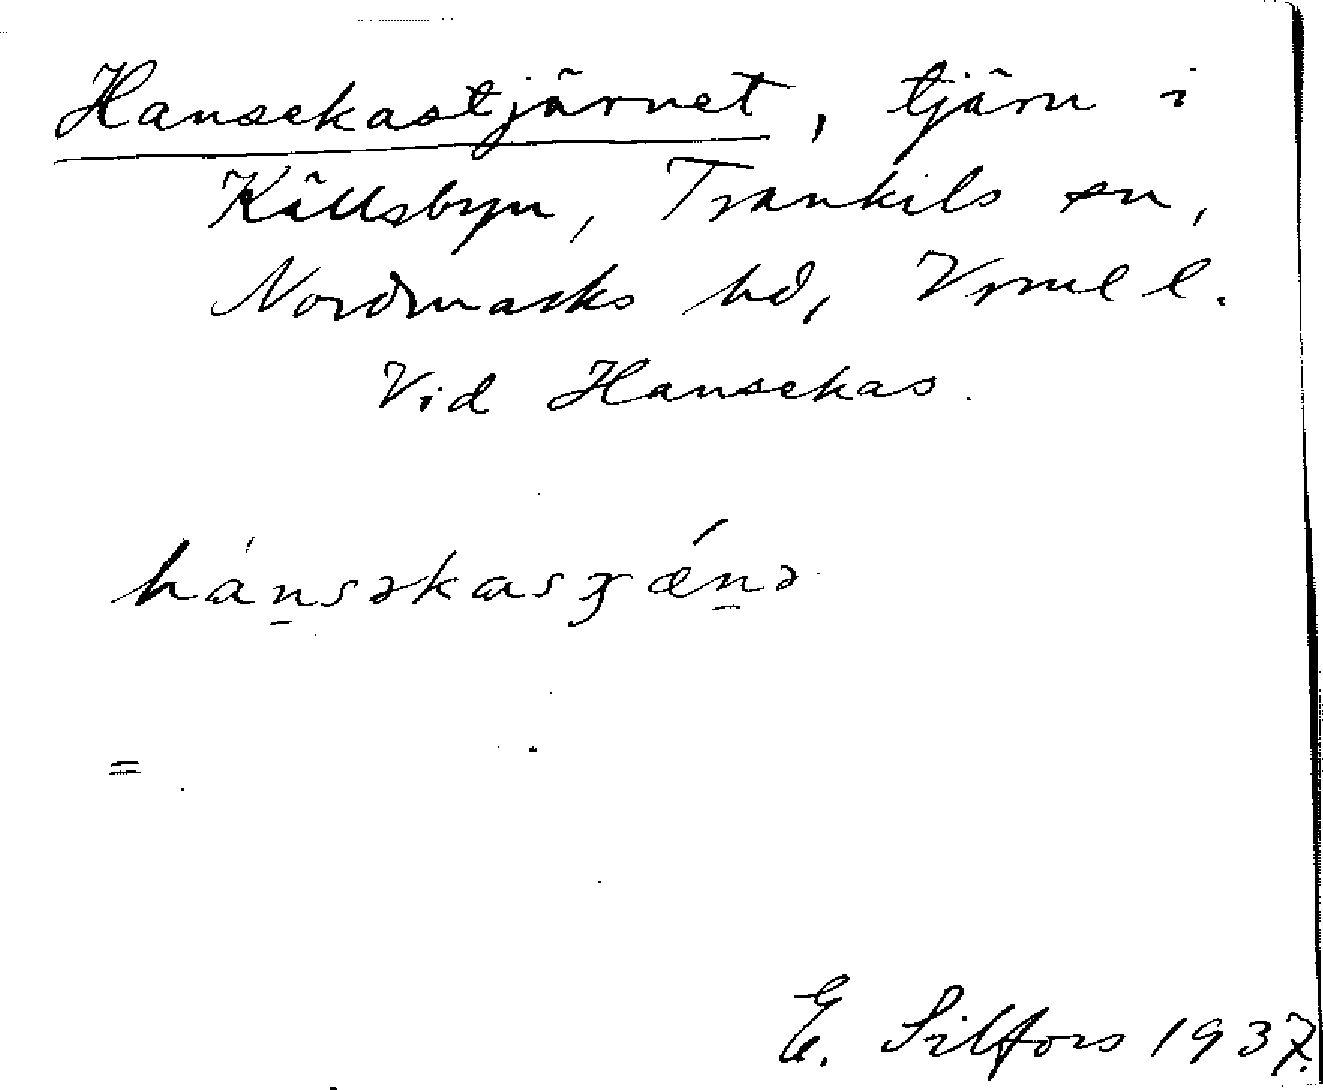 Hansekastjärnet, tjärn i
Källsbyn, Trankils sn,
Nordmarks hd, Vrml l.
Vid Hansekas.
hánsəkasɟǽnə
=
E. Silfors 1937.